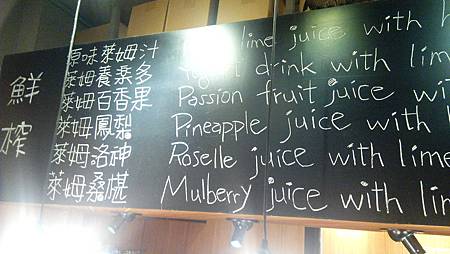 鮮榨
原味萊姆汁 lime juice with
萊姆養樂多 Yogurt drink with lim
萊姆百香果 Passion fruit juice wi
萊姆鳳梨 Pineapple juice with
萊姆洛神 Roselle juice with lime
萊姆桑椹 Mulberry juice with lim